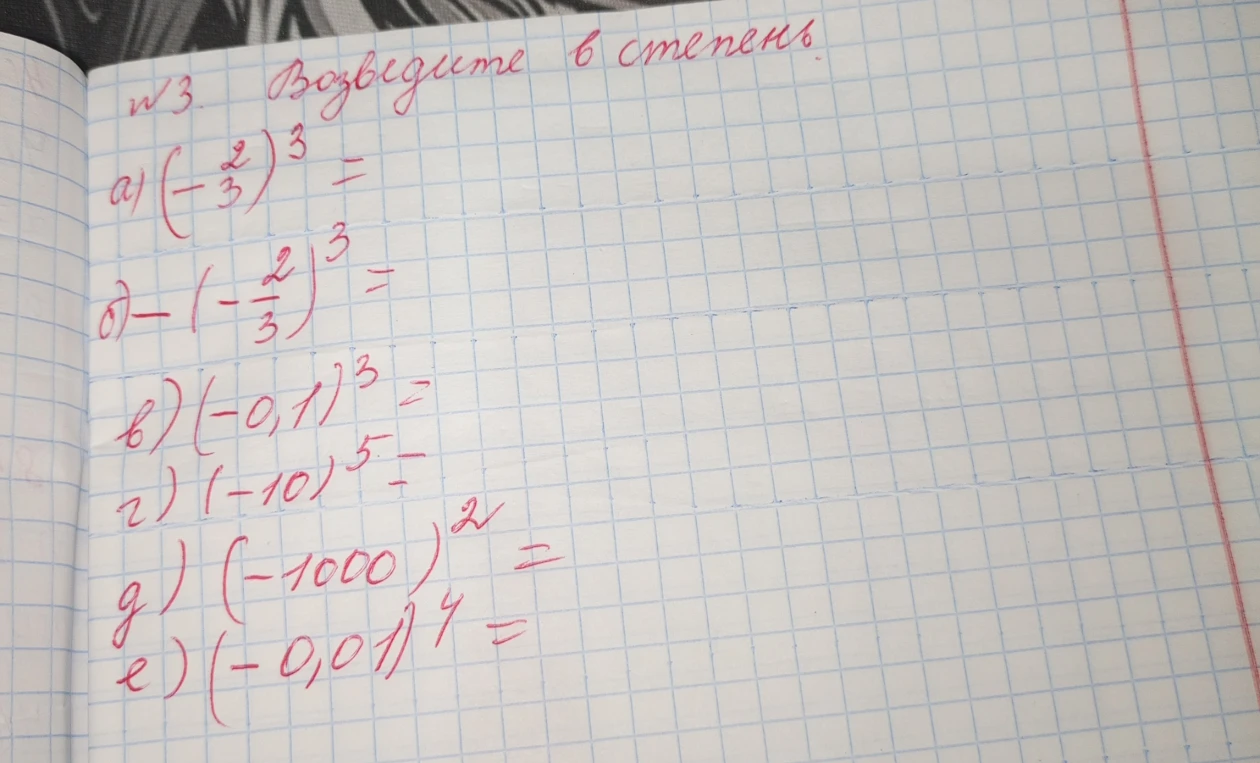 №3. Возведите в степень.
а) (-2/3)³ =
б) - (-2/3)³ =
в) (-0,1)³ =
г) (-10)⁵ =
д) (-1000)² =
е) (-0,01)⁴ =